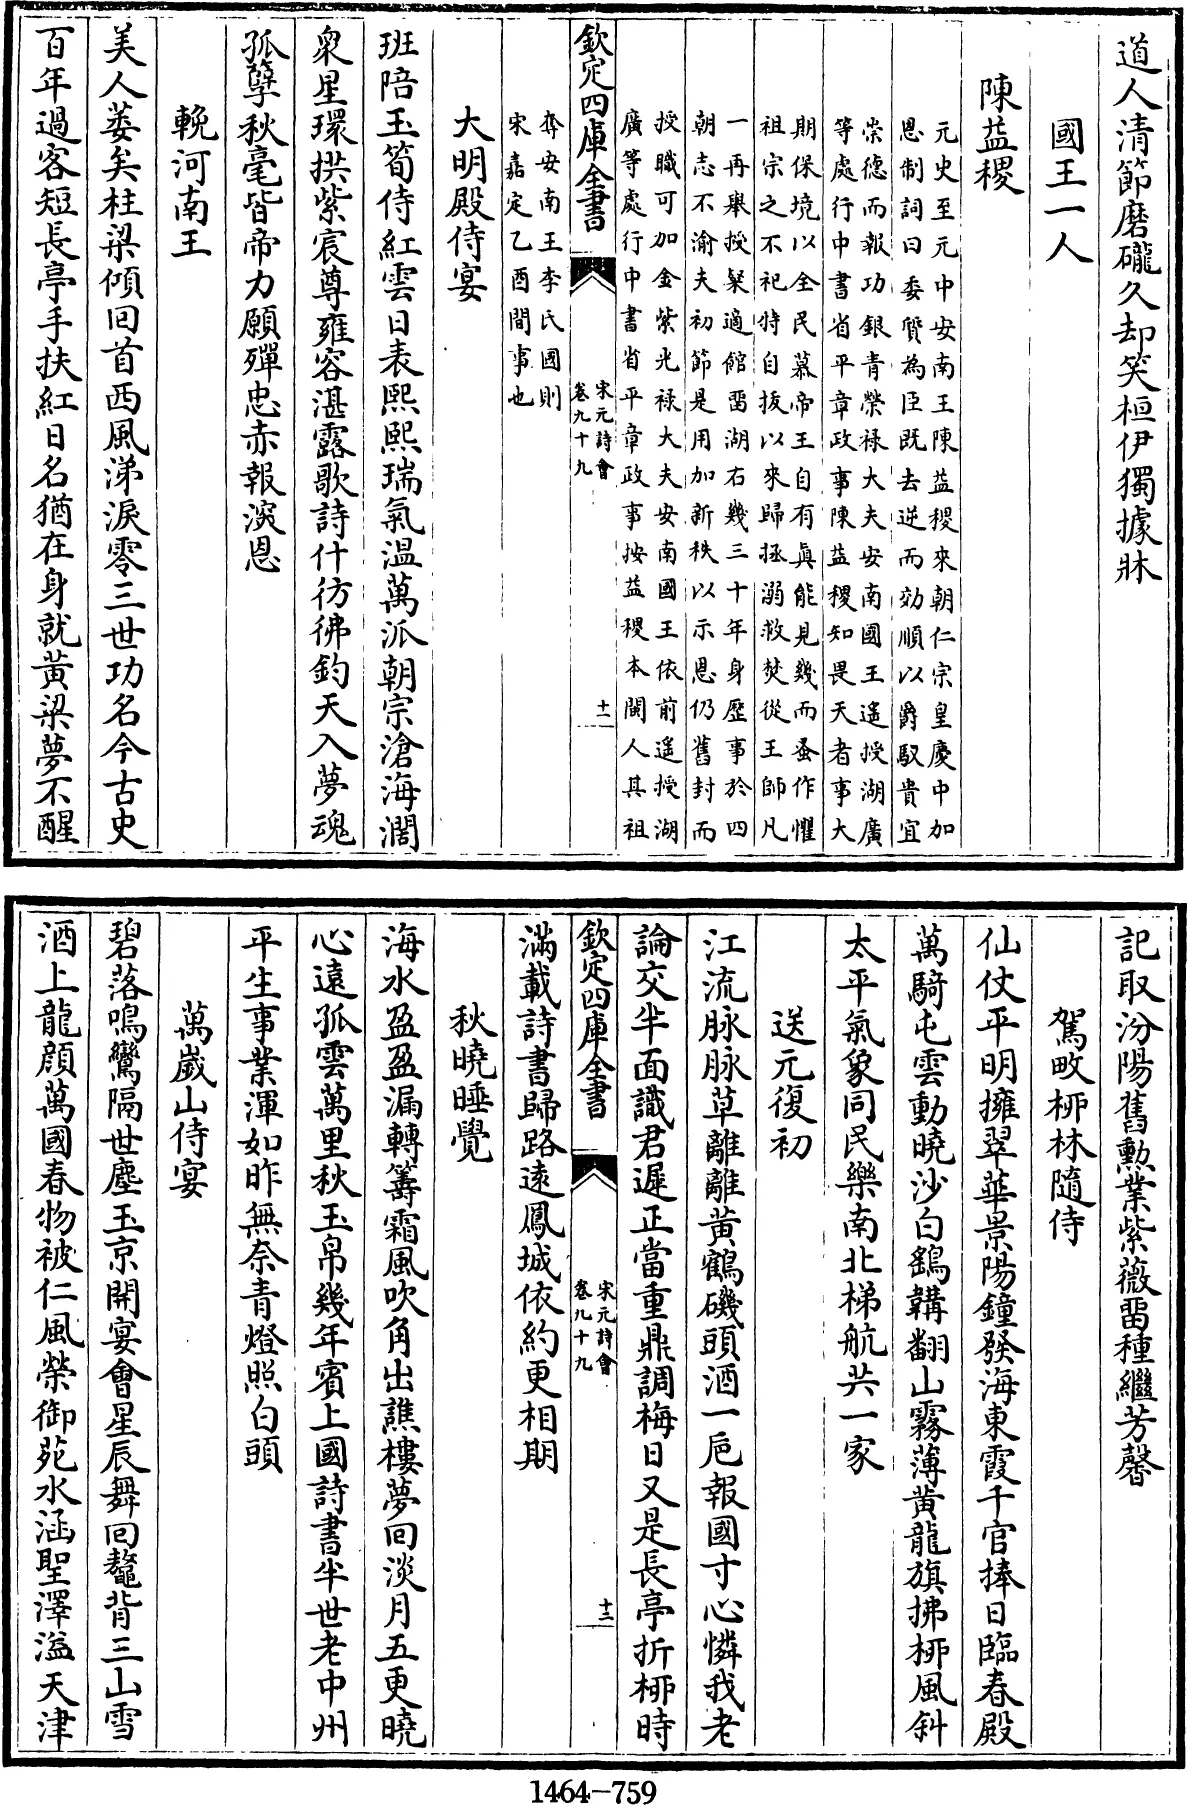 道人清節磨礲久却笑桓伊獨據牀
國王一人
陳益稷
元史至元中安南王陳益稷來朝仁宗皇慶中加
恩制詞曰委質為臣既去逆而効順以爵馭貴宜
崇德而報功銀青榮祿大夫安南國王遙授湖廣
等處行中書省平章政事陳益稷知畏天者事大
期保境以全民慕帝王自有真能見幾而蚤作懼
祖宗之不祀特自拔以來歸拯溺救焚從王師凡
一再舉授粲適館留湖右幾三十年身歷事於四
朝志不渝夫初節是用加新秩以示恩仍舊封而
授職可加金紫光祿大夫安南國王依前遙授湖
廣等處行中書省平章政事按益稷本閩人其祖
欽定四庫全書
宋元詩會
卷九十九
十二
奪安南王李氏國則
宋嘉定乙酉間事也
大明殿侍宴
班陪玉筍侍紅雲日表熙熙瑞氣溫萬派朝宗滄海濶
衆星環拱紫宸尊雍容湛露歌詩什彷彿鈞天入夢魂
孤孽秋毫皆帝力願殫忠赤報深恩
輓河南王
美人萎矣柱梁傾回首西風涕淚零三世功名今古史
百年過客短長亭手扶紅日名猶在身就黃粱夢不醒
記取汾陽舊勲業紫薇留種繼芳馨
駕畋栁林隨侍
仙仗平明擁翠華景陽鐘發海東霞千官捧日臨春殿
萬騎屯雲動曉沙白鷂韝翻山霧薄黃龍旗拂栁風斜
太平氣象同民樂南北梯航共一家
送元復初
江流脉脉草離離黃鶴磯頭酒一巵報國寸心憐我老
論交半面識君遲正當重鼎調梅日又是長亭折栁時
欽定四庫全書
宋元詩會
卷九十九
十三
滿載詩書歸路遠鳳城依約更相期
秋曉睡覺
海水盈盈漏轉籌霜風吹角出譙樓夢回淡月五更曉
心遠孤雲萬里秋玉帛幾年賓上國詩書半世老中州
平生事業渾如昨無奈青燈照白頭
萬嵗山侍宴
碧落鳴鸞隔世塵玉京開宴會星辰舞回鼇背三山雪
酒上龍顔萬國春物被仁風榮御苑水涵聖澤溢天津
1464-759